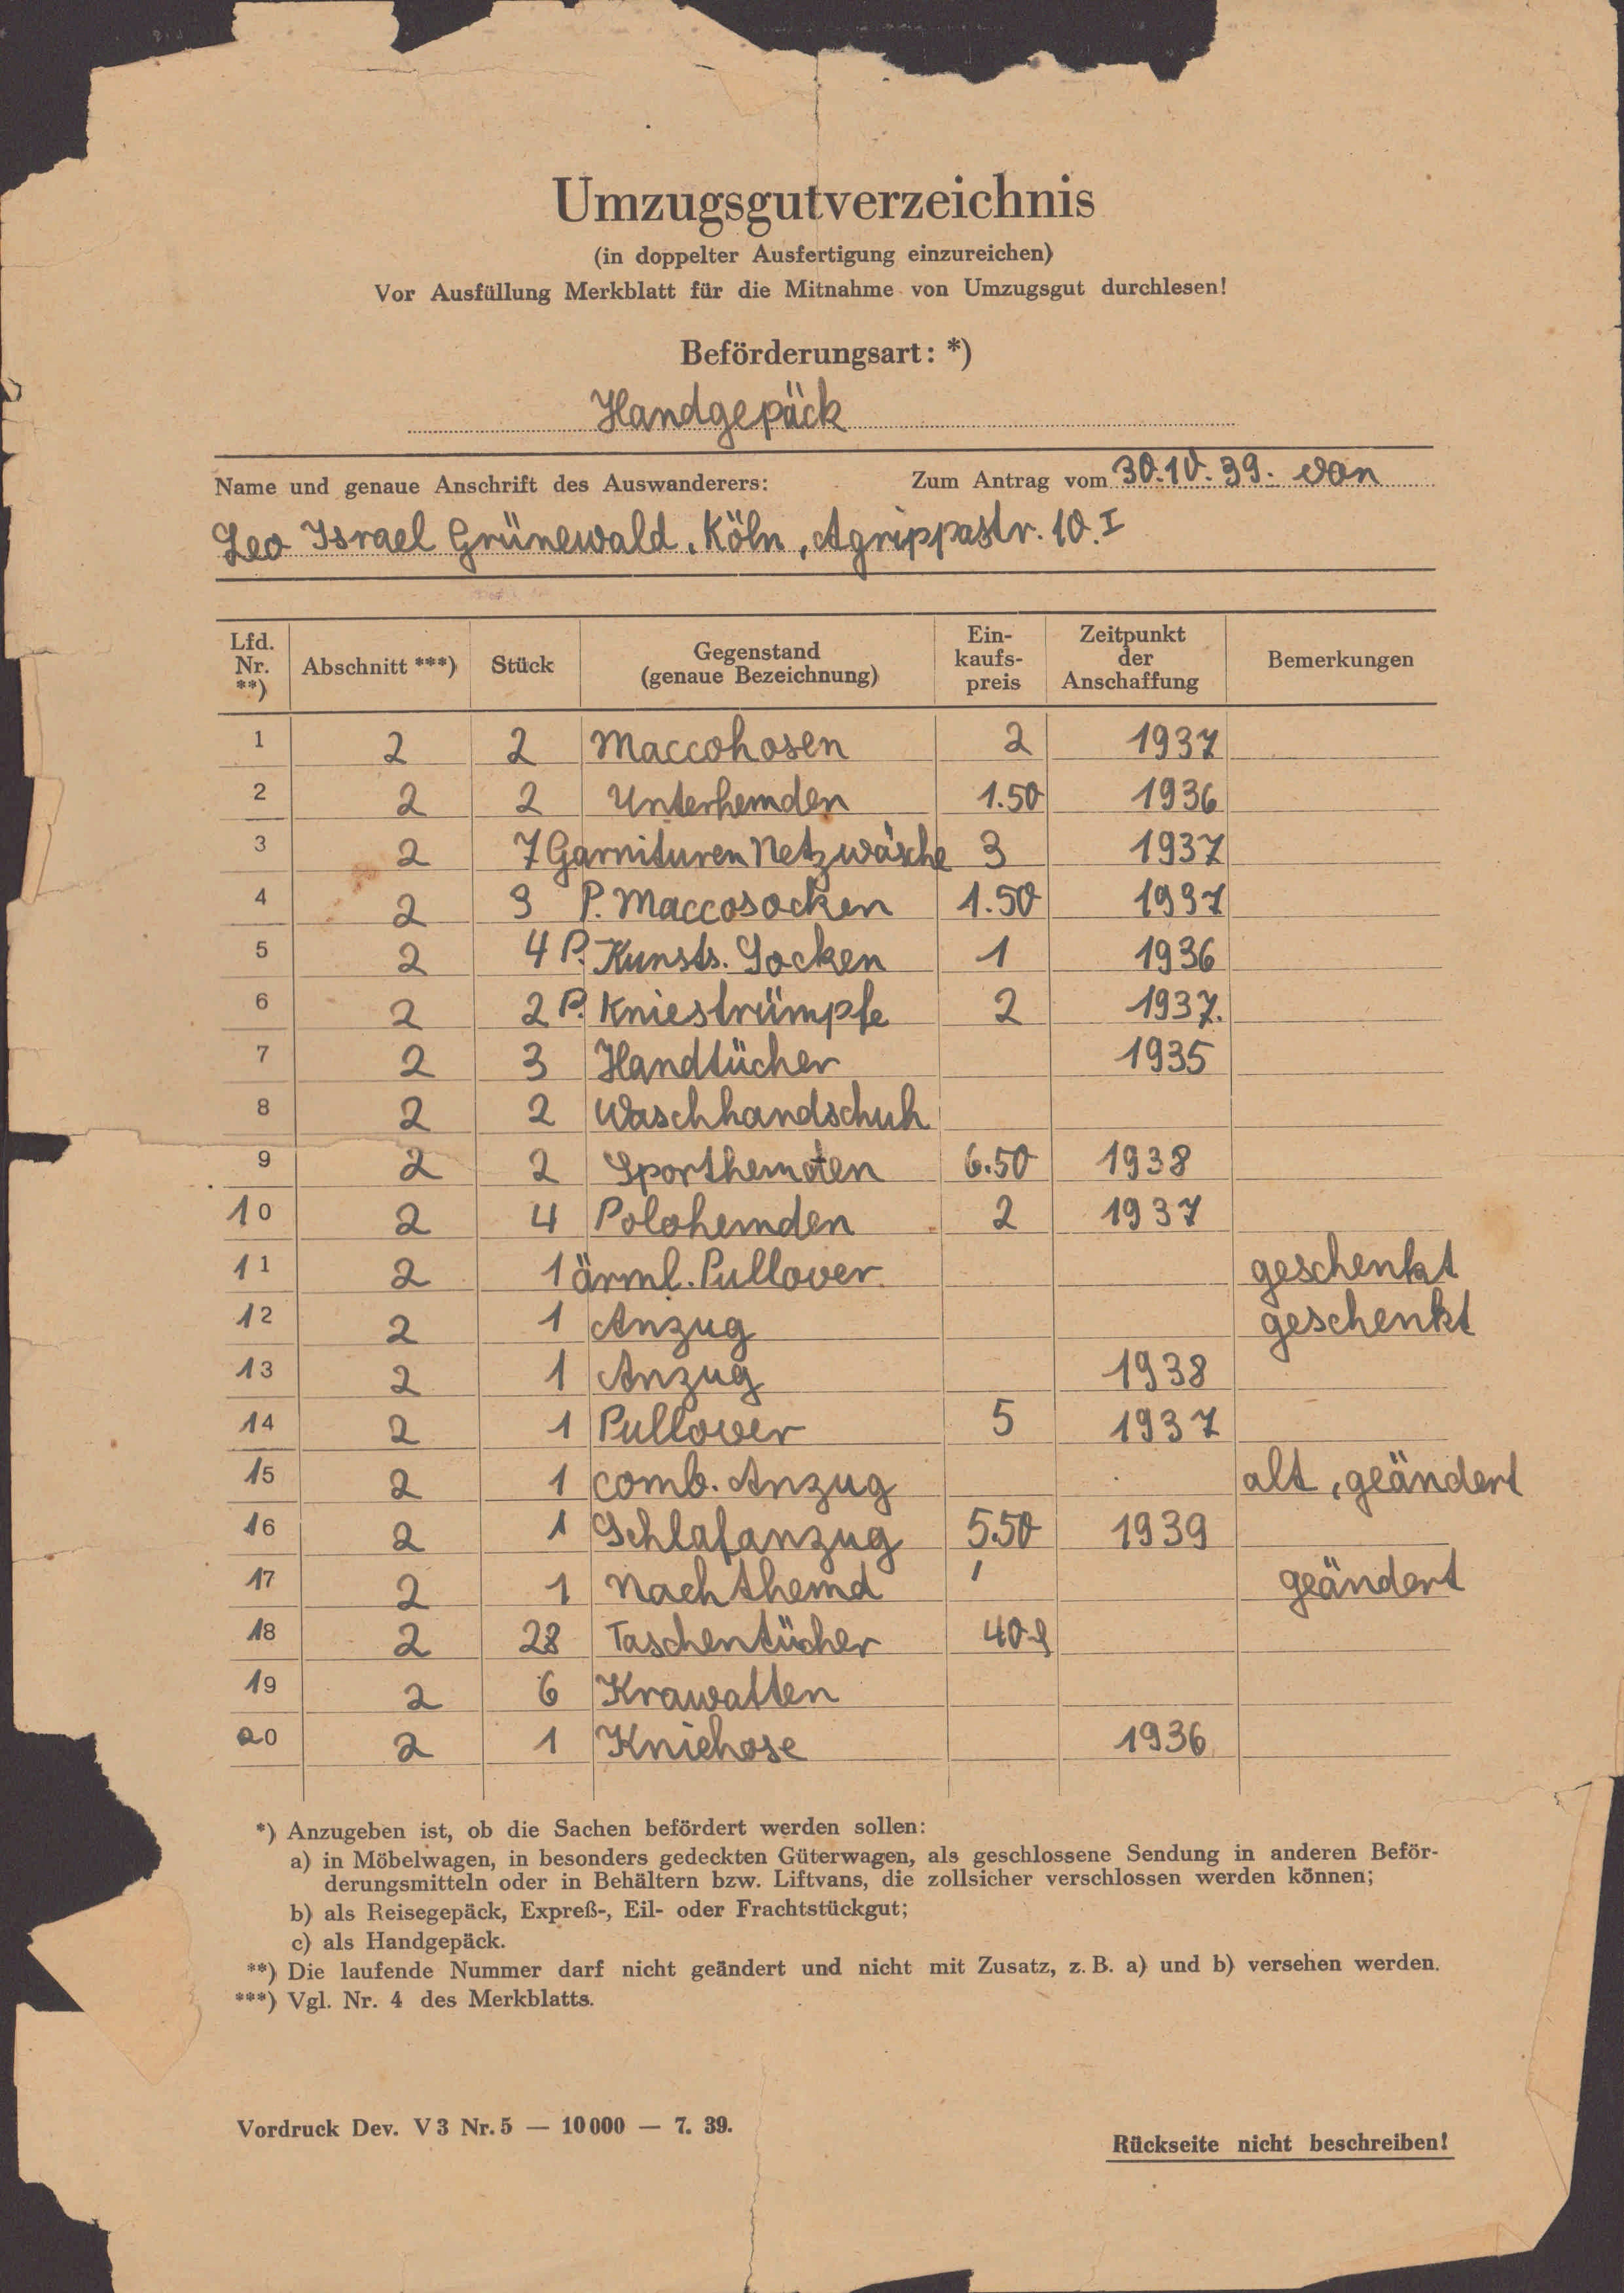 Umzugsgutverzeichnis
(in doppelter Ausfertigung einzureichen)
Vor Ausfüllung Merkblatt für die Mitnahme von Umzugsgut durchlesen!
Beförderungsart: *)
Handgepäck
Name und genaue Anschrift des Auswanderers: Zum Antrag vom 30.10.39. von
Leo Israel Grünewald, Köln, Agrippastr. 10.I
Lfd. Nr. **) Abschnitt ***) Stück Gegenstand (genaue Bezeichnung) Ein-kaufs-preis Zeitpunkt der Anschaffung Bemerkungen
1 2 2 Maccohosen 2 1937
2 2 2 Unterhemden 1.50 1936
3 2 7 Garnituren Netzwäsche 3 1937
4 2 3 P. Maccosocken 1.50 1937
5 2 4 P. Kunsts. Socken 1 1936
6 2 2 P. Kniestrümpfe 2 1937.
7 2 3 Handtücher 1935
8 2 2 Waschhandschuh
9 2 2 Sporthemden 6.50 1938
10 2 4 Polohemden 2 1937
11 2 1 ärml. Pullover. geschenkt
12 2 1 Anzug geschenkt
13 2 1 Anzug 1938
14 2 1 Pullover 5 1937
15 2 1 comb. Anzug alt, geändert
16 2 1 Schlafanzug 5.50 1939
17 2 1 Nachthemd geändert
18 2 28 Taschentücher 40
19 2 6 Krawatten
20 2 1 Kniehose 1936
*) Anzugeben ist, ob die Sachen befördert werden sollen:
a) in Möbelwagen, in besonders gedeckten Güterwagen, als geschlossene Sendung in anderen Beför-
derungsmitteln oder in Behältern bzw. Liftvans, die zollsicher verschlossen werden können;
b) als Reisegepäck, Expreß-, Eil- oder Frachtstückgut;
c) als Handgepäck.
**) Die laufende Nummer darf nicht geändert und nicht mit Zusatz, z. B. a) und b) versehen werden.
***) Vgl. Nr. 4 des Merkblatts.
Vordruck Dev. V 3 Nr. 5 — 10 000 — 7. 39.
Rückseite nicht beschreiben!